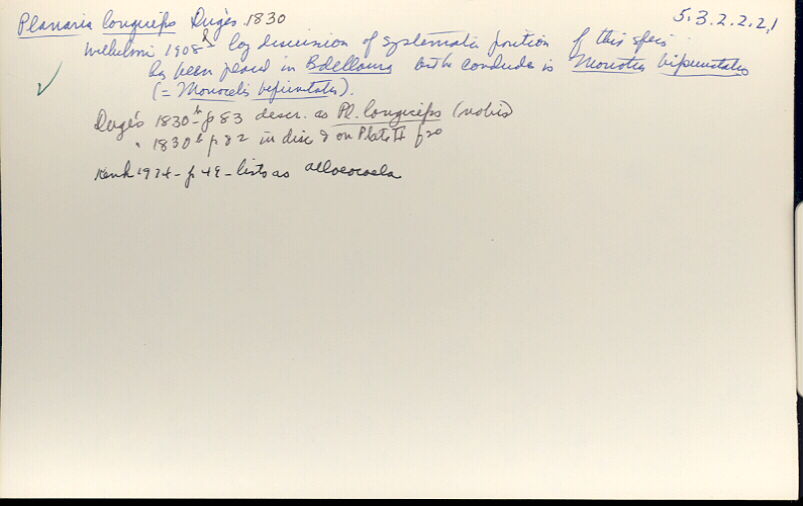 Planaria longiceps Dugès 1830 5.3.2.2.2.1
Wilhelmi 1908 b log discussion of systematic position of this speci
has been placed in Bdelloura but he conclude is Monotus bipunctatus
(= Monocelis bipunctatus).
Dugès 1830 b p 83 descr. as Pl. longiceps (nobis)
" 1830 b p 82 in disc & on Plate II f 20
Kenk 1974 - p 49 - lists as alloeocoela